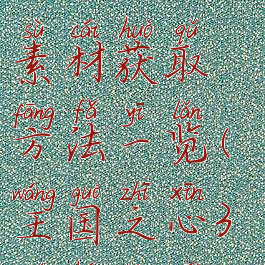 sù cái huò qǔ
素材获取
fāng fǎ yī lǎn
方法一览(
wáng guó zhī xīn
王国之心3